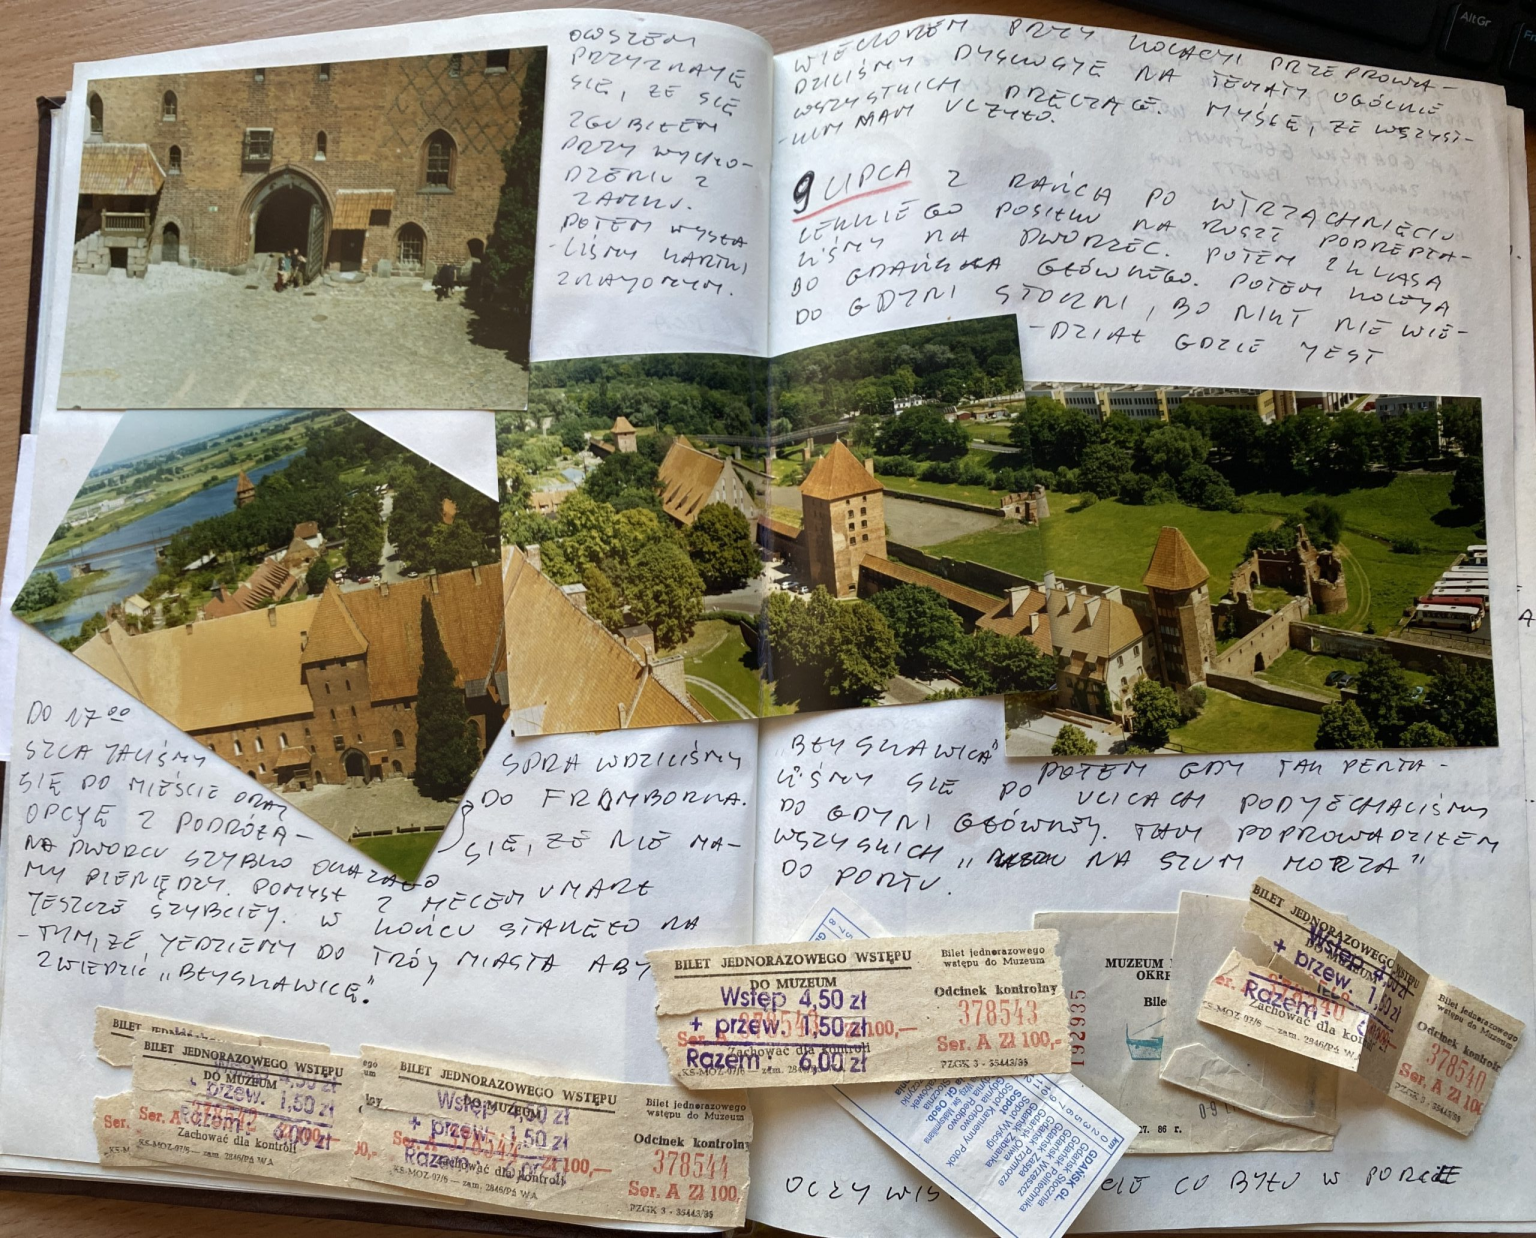 OWSZEM
PRZYZNAJĘ
SIĘ, ŻE SIĘ
ZGUBIŁEM
PRZY WYCHO-
DZENIU Z
ZAMKU.
POTEM WYSŁA
-LIŚMY KARTKI
ZNAJOMYM.
DO 17⁰⁰
SZLAJALIŚMY
SIĘ PO MIEŚCIE ORAZ
OPCJĘ Z PODRÓŻĄ
SPRAWDZILIŚMY
DO FROMBORKA.
NA DWORCU SZYBKO OKAZAŁO
SIĘ, ŻE NIE MA-
MY PIENIĘDZY. POMYSŁ Z MECEM UMARŁ
JESZCZE SZYBCIEJ. W KOŃCU STANĘŁO NA
-TYM, ŻE JEDZIEMY DO TRÓJ MIASTA ABY
ZWIEDZIĆ „BŁYSKAWICĘ".
BILET JEDNORAZOWEGO WSTĘPU
DO MUZEUM
Zachować dla kontroli
KS-MOZ-97/6 — zam. 2846/Pá W.A
BILET JEDNORAZOWEGO WSTĘPU
DO MUZEUM
Wstęp 4,50 zł
+ przew. 1,50 zł
Ser. A 378544 Zł 100,—
Razem: 6,00 zł
Zachować dla kontroli
KS-MOZ-97/6 — zam. 2846/Pá W.A
Bilet jednorazowego
wstępu do Muzeum
Odcinek kontrolny
378544
Ser. A Zł 100,
PZGK 3 - 35443/85
WIECZOREM PRZY KOLACJI PRZEPROWA-
DZILIŚMY DYSKUSJĘ NA TEMATY OGÓLNIE
WSZYSTKICH DRĘCZĄCE. MYŚLĘ, ŻE WSZYST-
-KIM NAM ULŻYŁO.
9 LIPCA Z RAŃCA PO WTRZĄCHNIĘCIU
LEKKIEGO POSIŁKU NA RUSZT PODREPTA-
LIŚMY NA DWORZEC. POTEM 2 KLASĄ
DO GDAŃSKA GŁÓWNEGO. POTEM KOLEJĄ
DO GDYNI STOCZNI, BO NIKT NIE WIE-
-DZIAŁ GDZIE JEST
„BŁYSKAWICA" POTEM GDY TAK PĘTA-
LIŚMY SIĘ PO ULICACH PODJECHALIŚMY
DO GDYNI GŁÓWNEJ. TAM POPROWADZIŁEM
WSZYSKICH „ NA SZUM MORZA"
DO PORTU.
BILET JEDNORAZOWEGO WSTĘPU
DO MUZEUM
Wstęp 4,50 zł
+ przew. 1,50 zł
Ser. A 378543 Zł 100,—
Razem: 6,00 zł
Zachować dla kontroli
KS-MOZ-97/6 — zam. 2846/Pá W.A
Bilet jednorazowego
wstępu do Muzeum
Odcinek kontrolny
378543
Ser. A Zł 100,—
PZGK 3 - 35443/85
192935
MUZEUM
OKRĘ
Bile
BILET JEDNORAZOWEGO WSTĘPU
DO MUZEUM
Wstęp 4,50 zł
+ przew. 1,50 zł
Razem:
Zachować dla kon
KS-MOZ-97/6 — zam. 2846/Pá W.A
Bilet jednorazowego
wstępu do Muzeum
Odcinek kontrolny
378540
Ser. A Zł 100
PZGK 3 - 35443/85
km
GDAŃSK GŁ.
Gdańsk Stocznia
Gdańsk Politechnika
Gdańsk Wrzeszcz
Gdańsk Zaspa
Gdańsk Przymorze
Gdańsk Oliwa
Gdańsk Żabianka
Sopot Wyścigi
Sopot
Sopot Kamienny Potok
OCZYWIŚ CIE CO BYŁO W PORCIE
AltGr